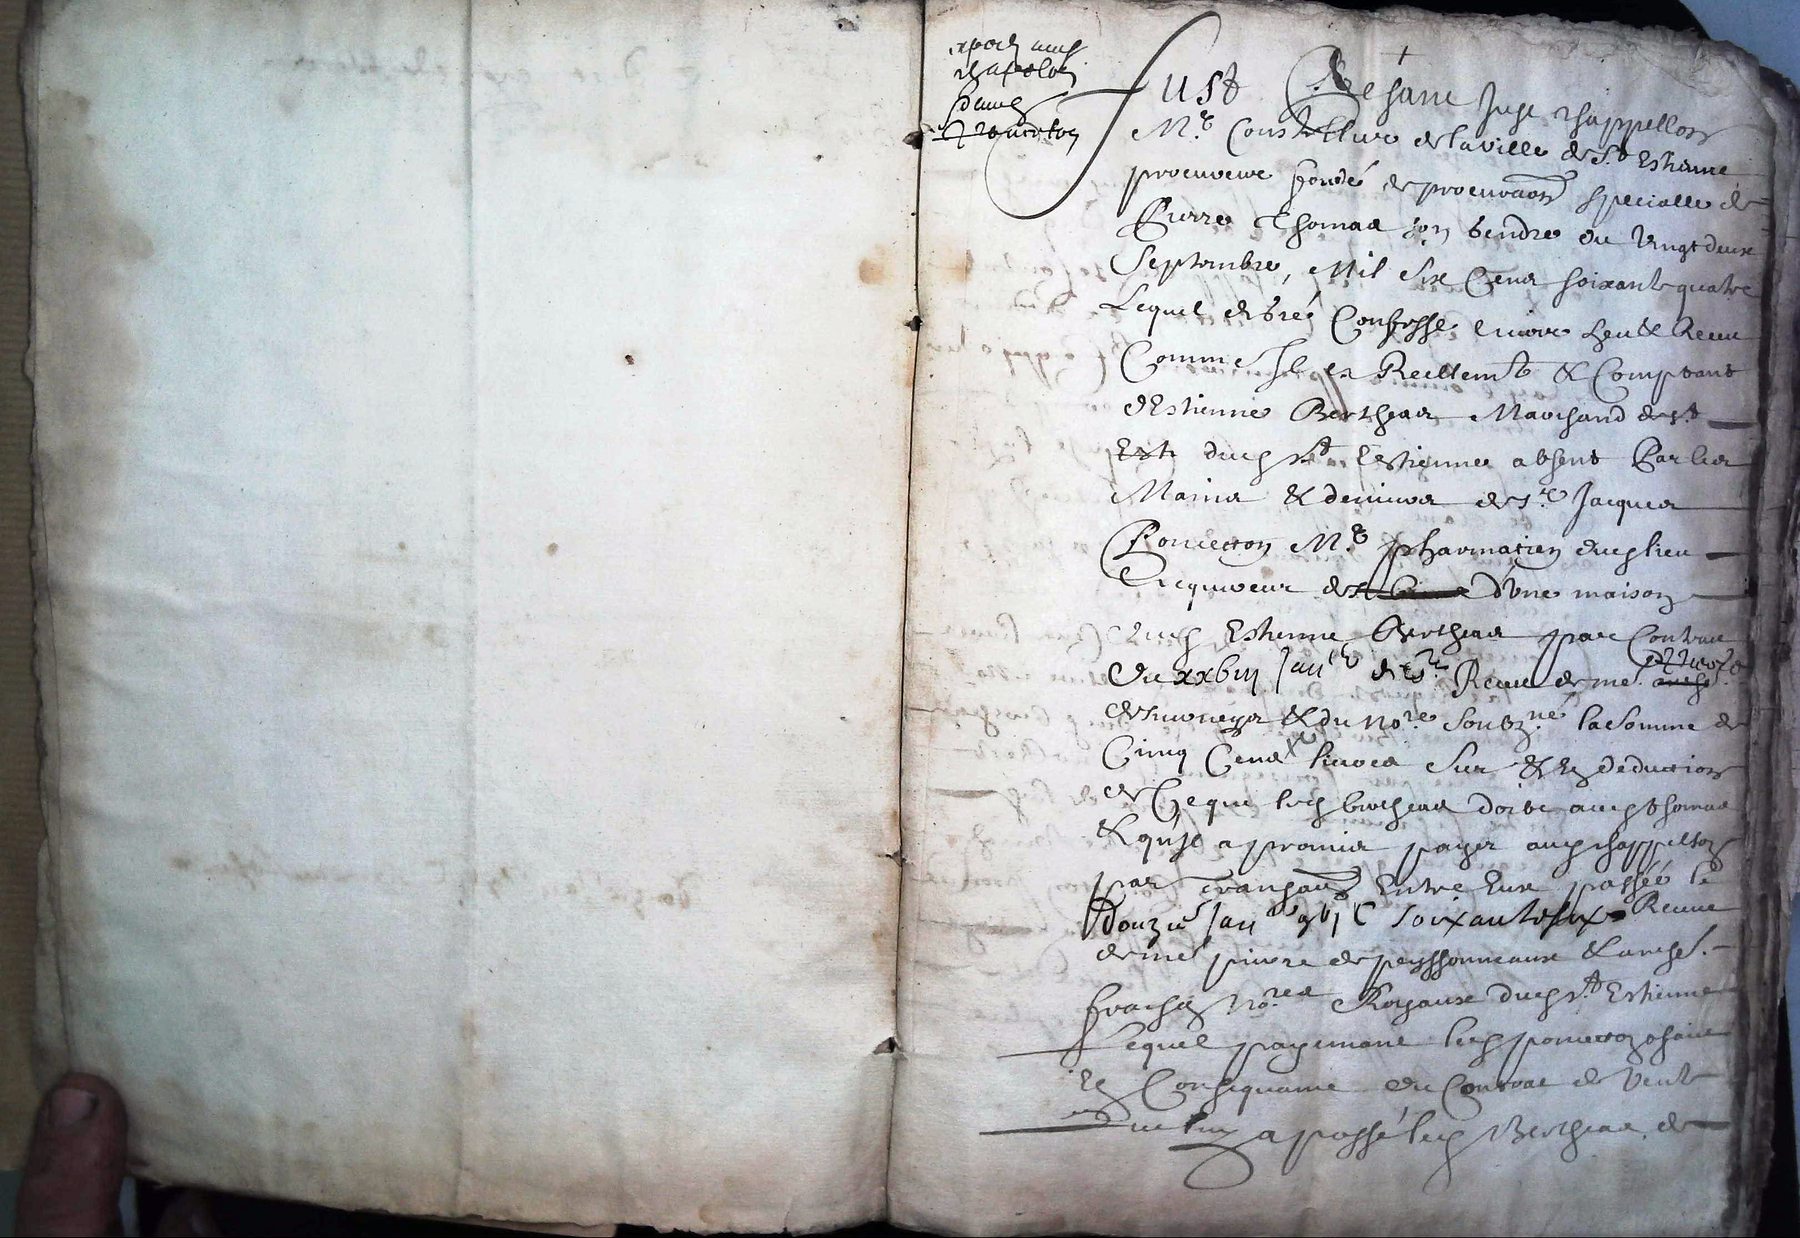 Fust presant Just Chappellon
Mre Coustellier de la ville de St Estienne
procureur fondé de procuraon specialle de
Pierre Thomas son gendre du vingt deux
Septembre, Mil Six Cens soixante quatre
Lequel de gré Confesse avoir heu & Receu
Comme Il a Reellemt & Comptant
d'Estienne Bertheas Marchand de st
Est dud st Estienne absent Par les
Mains & deniers de sr Jacques
Poncetton Mre pharmatien dud lieu
acquereur des d'une maison
dud Estienne Bertheas par Contract
du xxbiii Janer der Receu de me
& du Nore soubzné la somme de
Cinq Cens livres Sur & En deduction
de Ce que led bertheas doibt aud thomas
& qu'il a promis payer aud chappellon
par transaon Entre Eux passée le
douzie janer soixante six Receue
de me pierre de peyssonneaux &
Nores Royaux dud st Estienne
Lequel payemant led poncetton a faict
En Consequance du Contrat de vente
que luy a passé led Bertheas de